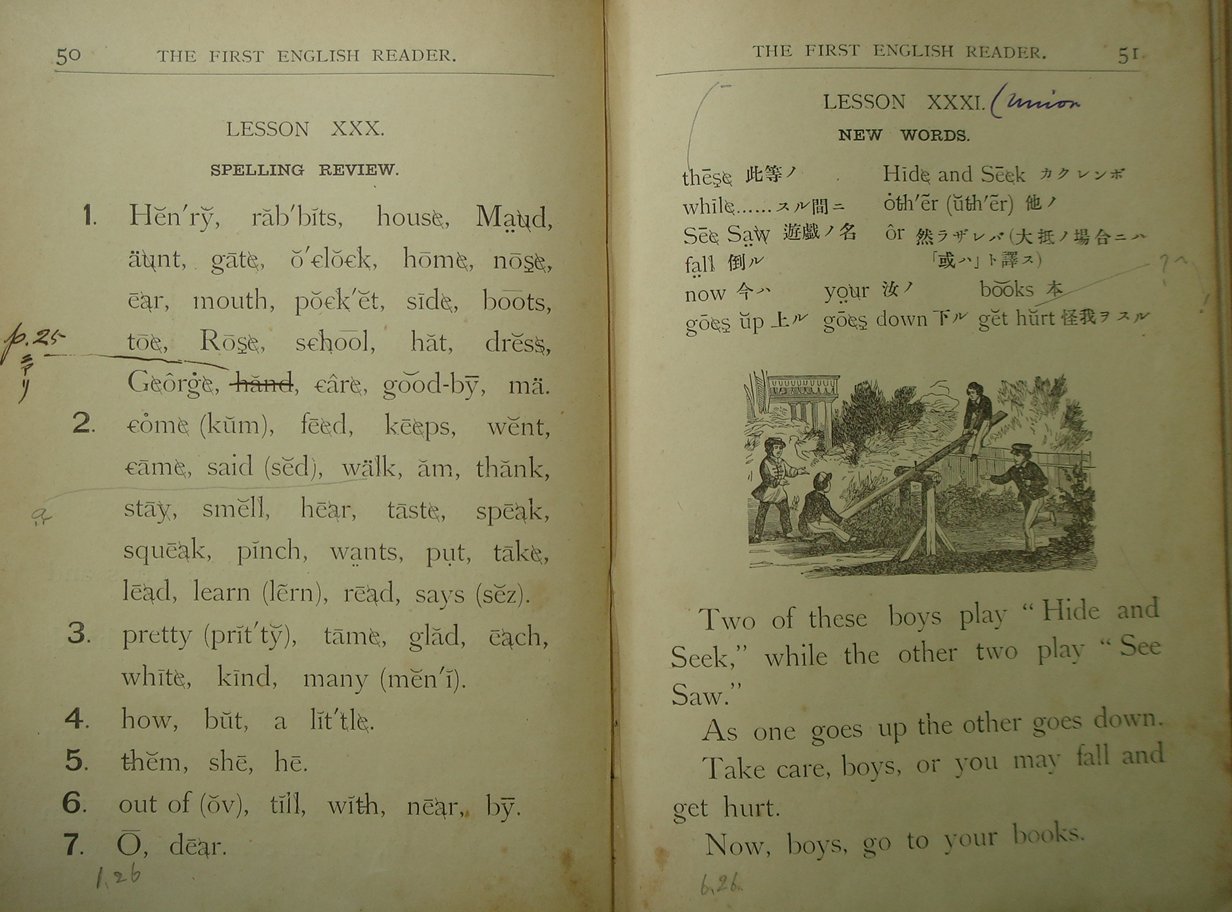 50 THE FIRST ENGLISH READER.
LESSON XXX.
SPELLING REVIEW.
1. Hĕn′rў̆, răb′bĭts, house, Ma̤ud,
äunt, gāte, ŏ'clŏck, hōme, nōs̱e,
ēar, mouth, pŏck′ĕt, sīde, bo͞ots,
tōe, Rōs̱e, sch͞ool, hăt, drĕss,
p. 25
ニアリ
Geôrġe, hănd, câre, go͝od-bȳ, mä.
2. cȯme (kŭm), fēed, kēeps, wĕnt,
cāme, said (sĕd), wälk, ăm, thănk,
a
stāy, smĕll, hēar, tāste, spēak,
squēak, pĭnch, wa̤nts, pṳt, tāke,
lēad, learn (lẽrn), rēad, says (sĕz).
3. pretty (prĭt′tў̆), tāme, glăd, ēach,
whīte, kīnd, many (mĕn′ĭ).
4. how, bŭt, a lĭt′tle.
5. thĕm, shē, hē.
6. out of (ŏv), tĭll, wĭth, nēar, bȳ.
7. Ō, dēar.
1,26
THE FIRST ENGLISH READER. 51
LESSON XXXI. (Union
NEW WORDS.
thēs̱e 此等ノ Hīde and Sēek カクレンボ
whīle......スル間ニ ȯth′ẽr (ŭth′ẽr) 他ノ
Sēe Sa̤w 遊戯ノ名 ôr 然ラザレバ(大抵ノ場合ニハ
fa̤ll 倒ル 「或ハ」ト譯ス)
now 今ハ yo̤ur 汝ノ bo͝oks 本
gōes̱ ŭp 上ル gōes̱ down 下ル gĕt hŭrt 怪我ヲスル
Two of these boys play “Hide and
Seek,” while the other two play “See
Saw.”
As one goes up the other goes down.
Take care, boys, or you may fall and
get hurt.
Now, boys, go to your books.
6,26.